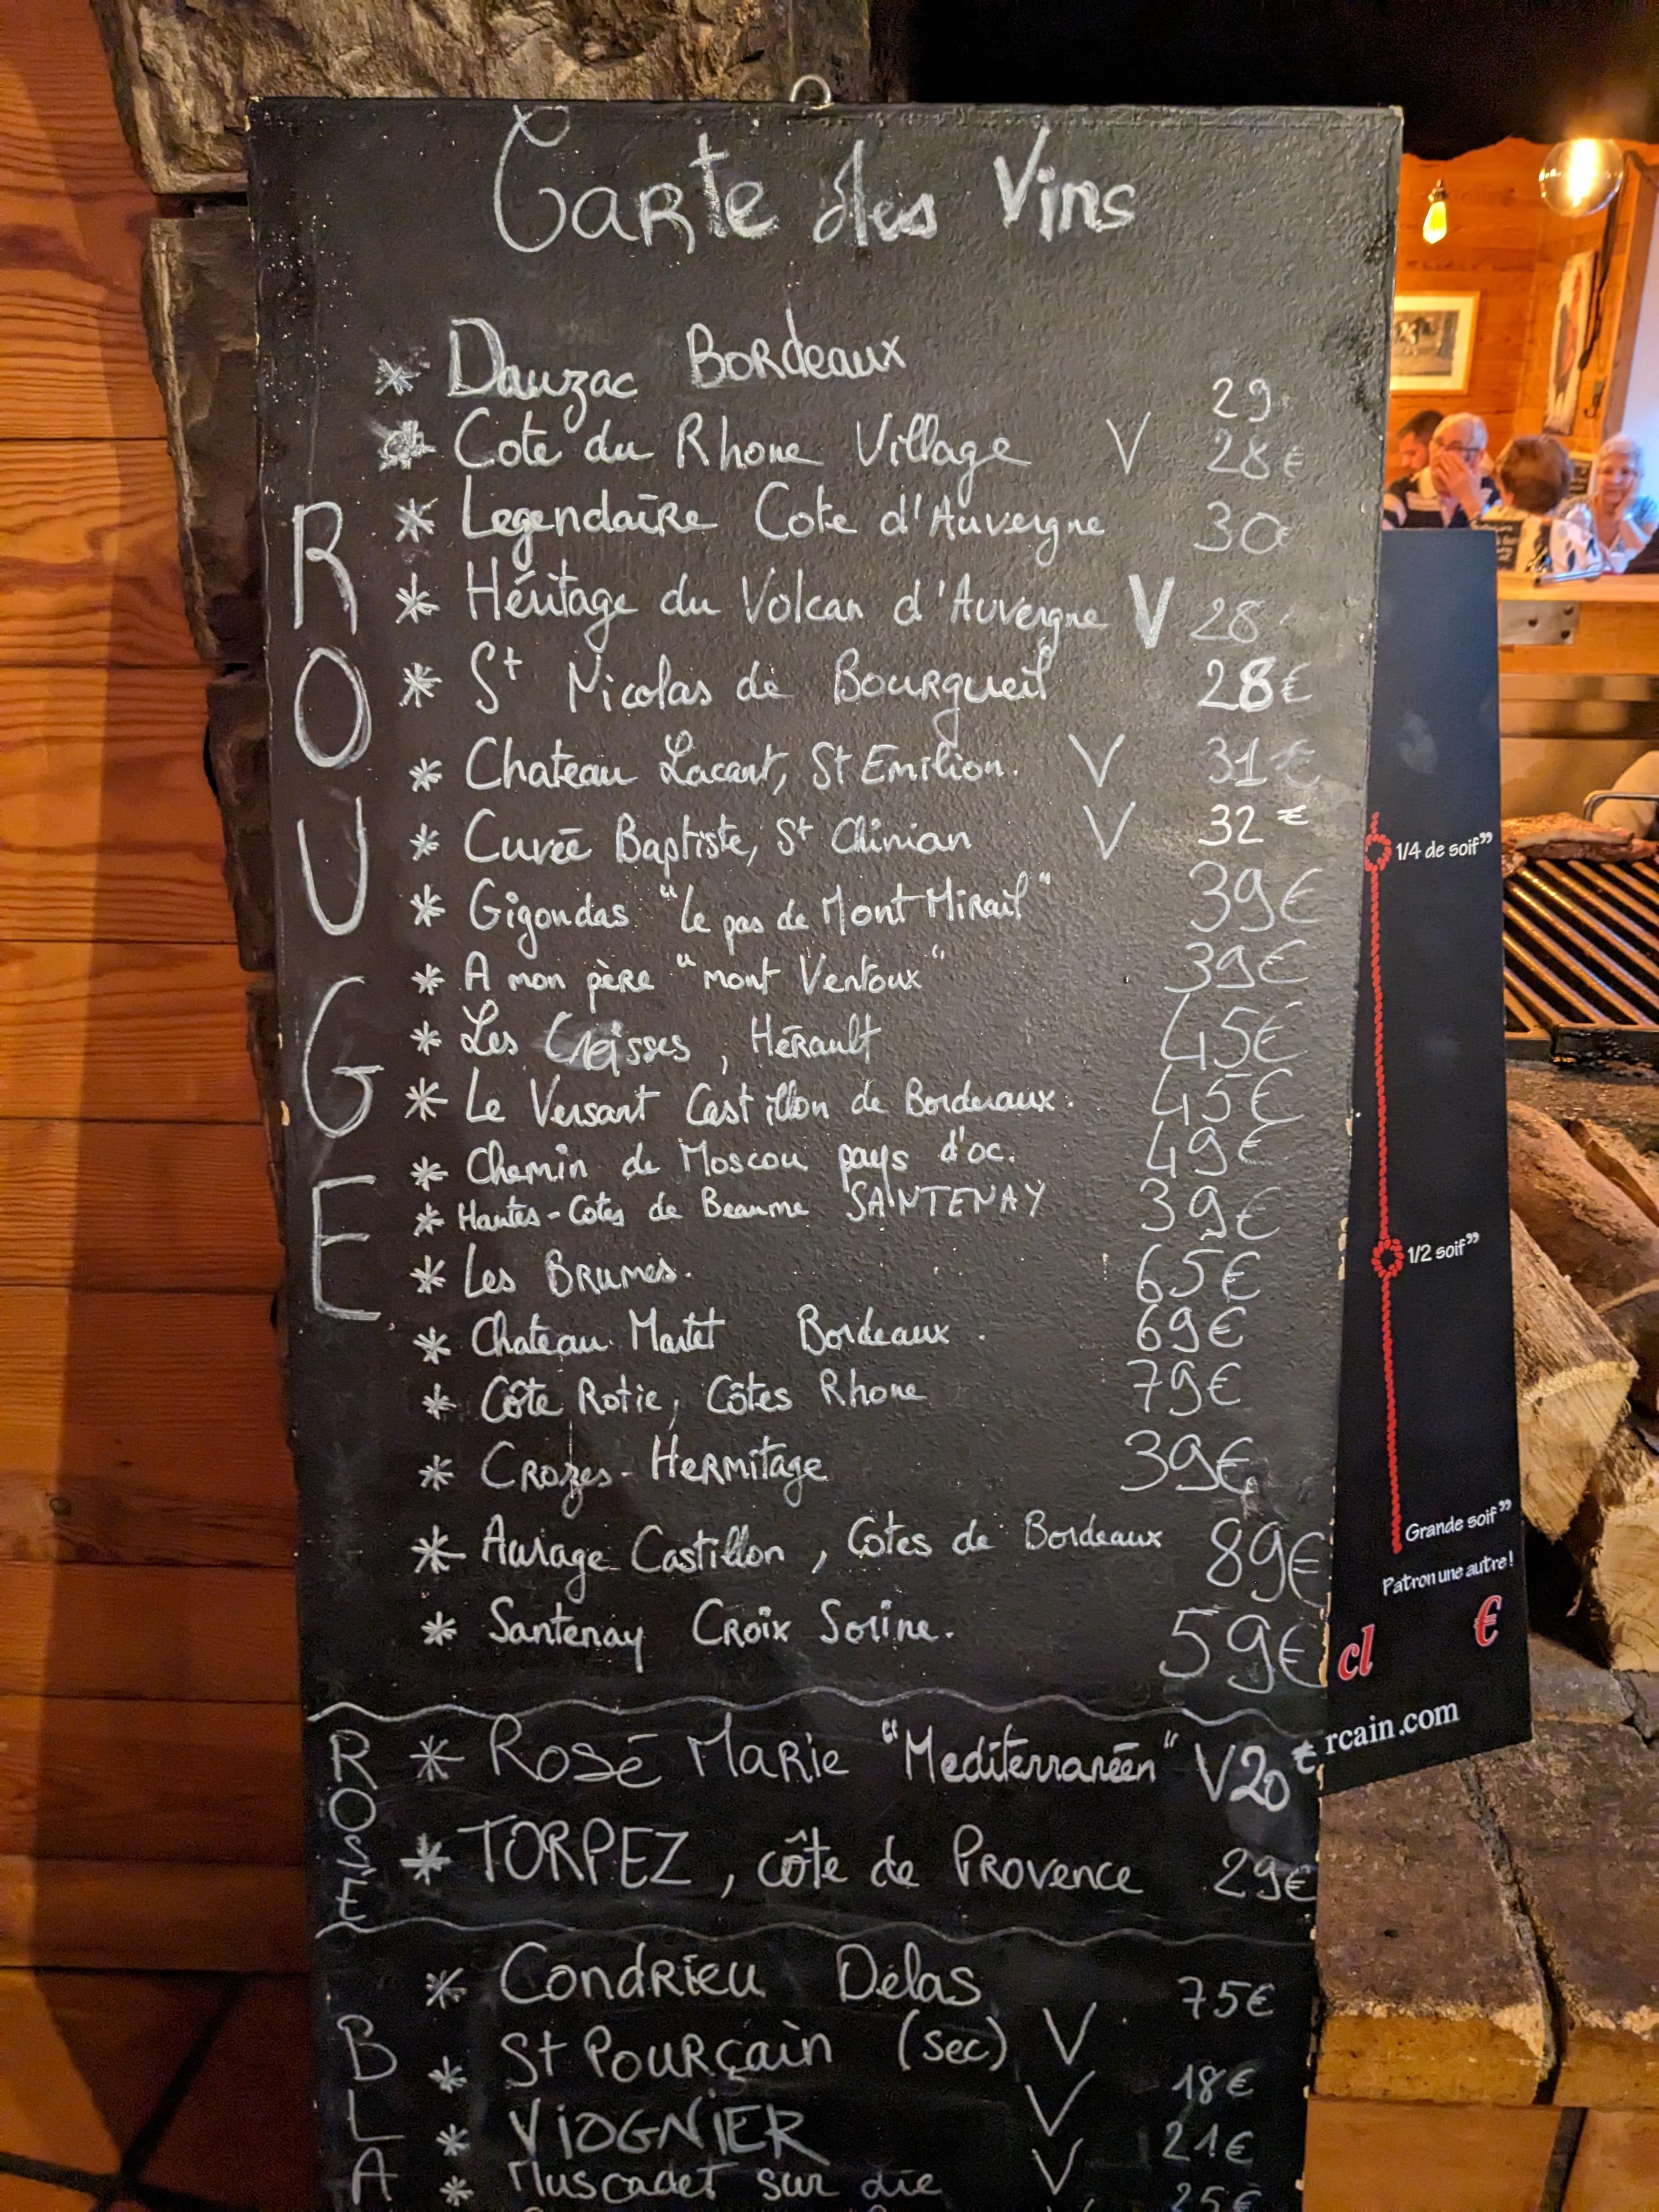 Carte des Vins
* Dauzac Bordeaux 29
* Cote du Rhone Village V 28€
* Legendaire Cote d'Auvergne 30
* Héritage du Volcan d'Auvergne V 28
* St Nicolas de Bourgueil 28€
* Chateau Lacant, St Emilion. V 31€
* Cuvée Baptiste, St Chinian V 32€
* Gigondas "Le pas de Mont Mirail" 39€
* A mon père "mont Ventoux" 39€
* Les Creisses, Hérault 45€
* Le Versant Castillon de Bordeaux. 45€
* Chemin de Moscou pays d'oc. 49€
* Hautes-Cotes de Beaume SANTENAY 39€
* Les Brumes. 65€
* Chateau Martet Bordeaux. 69€
* Côte Rotie, Côtes Rhone 79€
* Crozes-Hermitage 39€
* Aurage Castillon, Cotes de Bordeaux 89€
* Santenay Croix Sorine. 59€
ROUGE
* Rosé Marie "Mediterranéen" V 20€
* TORPEZ, côte de Provence 29€
ROSÉ
* Condrieu Delas 75€
* St Pourçain (sec) V 18€
* VIOGNIER V 21€
* Muscadet sur lie V 25€
BLA
1/4 de soif"
1/2 soif"
Grande soif"
Patron une autre!
cl €
rcain.com